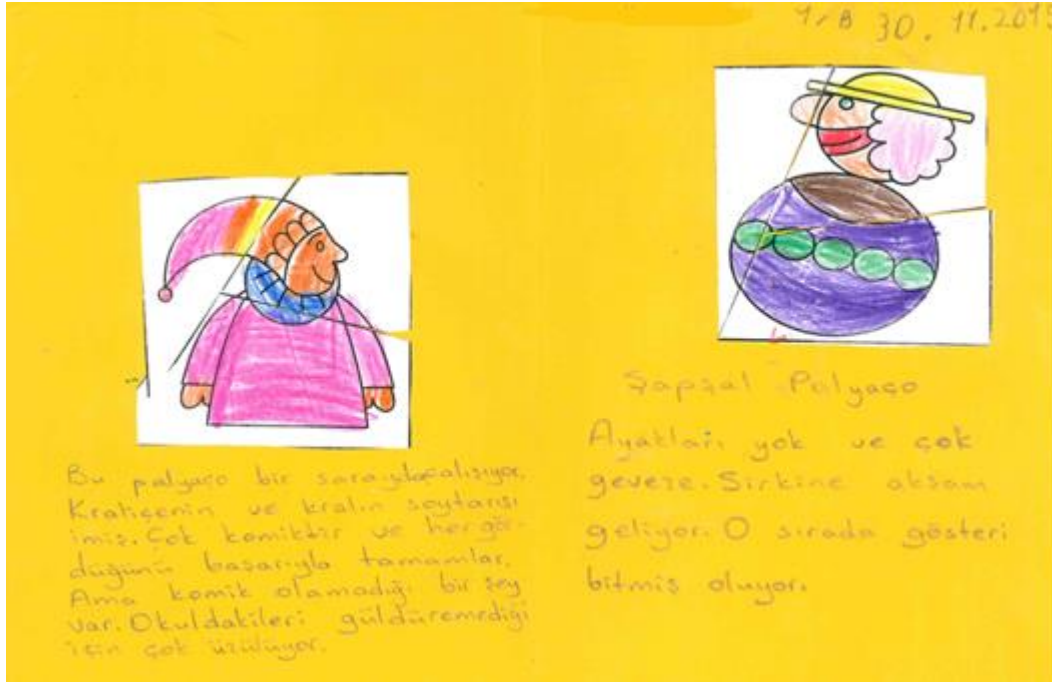 1/B 30.11.2015
Bu palyaço bir sarayda çalışıyor.
Kraliçenin ve kralın soytarısı
imiş. Çok komiktir ve her gör-
düğünü başarıyla tamamlar.
Ama komik olamadığı bir şey
var. Okuldakileri güldüremediği
için çok üzülüyor.
Şapşal Palyaço
Ayakları yok ve çok
geveze. Sirkine akşam
geliyor. O sırada gösteri
bitmiş oluyor.